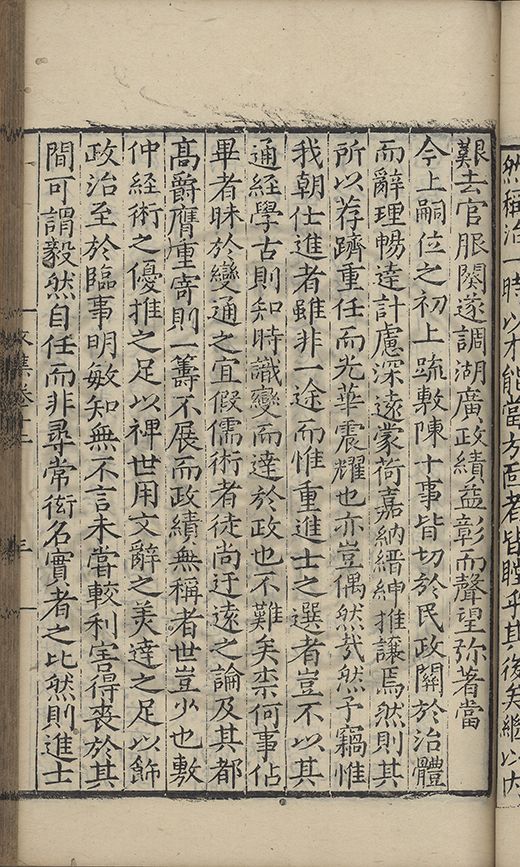 然稱治一時以才能當方面者皆瞠乎其後矣繼以內
艱去官服闋遂調湖廣政績益彰而聲望弥著當
今上嗣位之初上疏敷陳十事皆切於民政關於治體
而辭理暢達計慮深遠蒙荷嘉納縉紳推讓焉然則其
所以荐躋重任而光華震耀也亦豈偶然㢤然予竊惟
我朝仕進者雖非一途而惟重進士之選者豈不以其
通經學古則知時識變而達於政也不難矣柰何事佔
畢者昧於變通之宜假儒術者徒尚迂遠之論及其都
高爵膺重寄則一籌不展而政績無稱者世豈少也敷
仲経術之優推之足以裨世用文辭之美達之足以飾
政治至於臨事明敏知無不言未嘗較利害得喪於其
間可謂毅然自任而非尋常衒名實者之比然則進士
文集卷十二
三